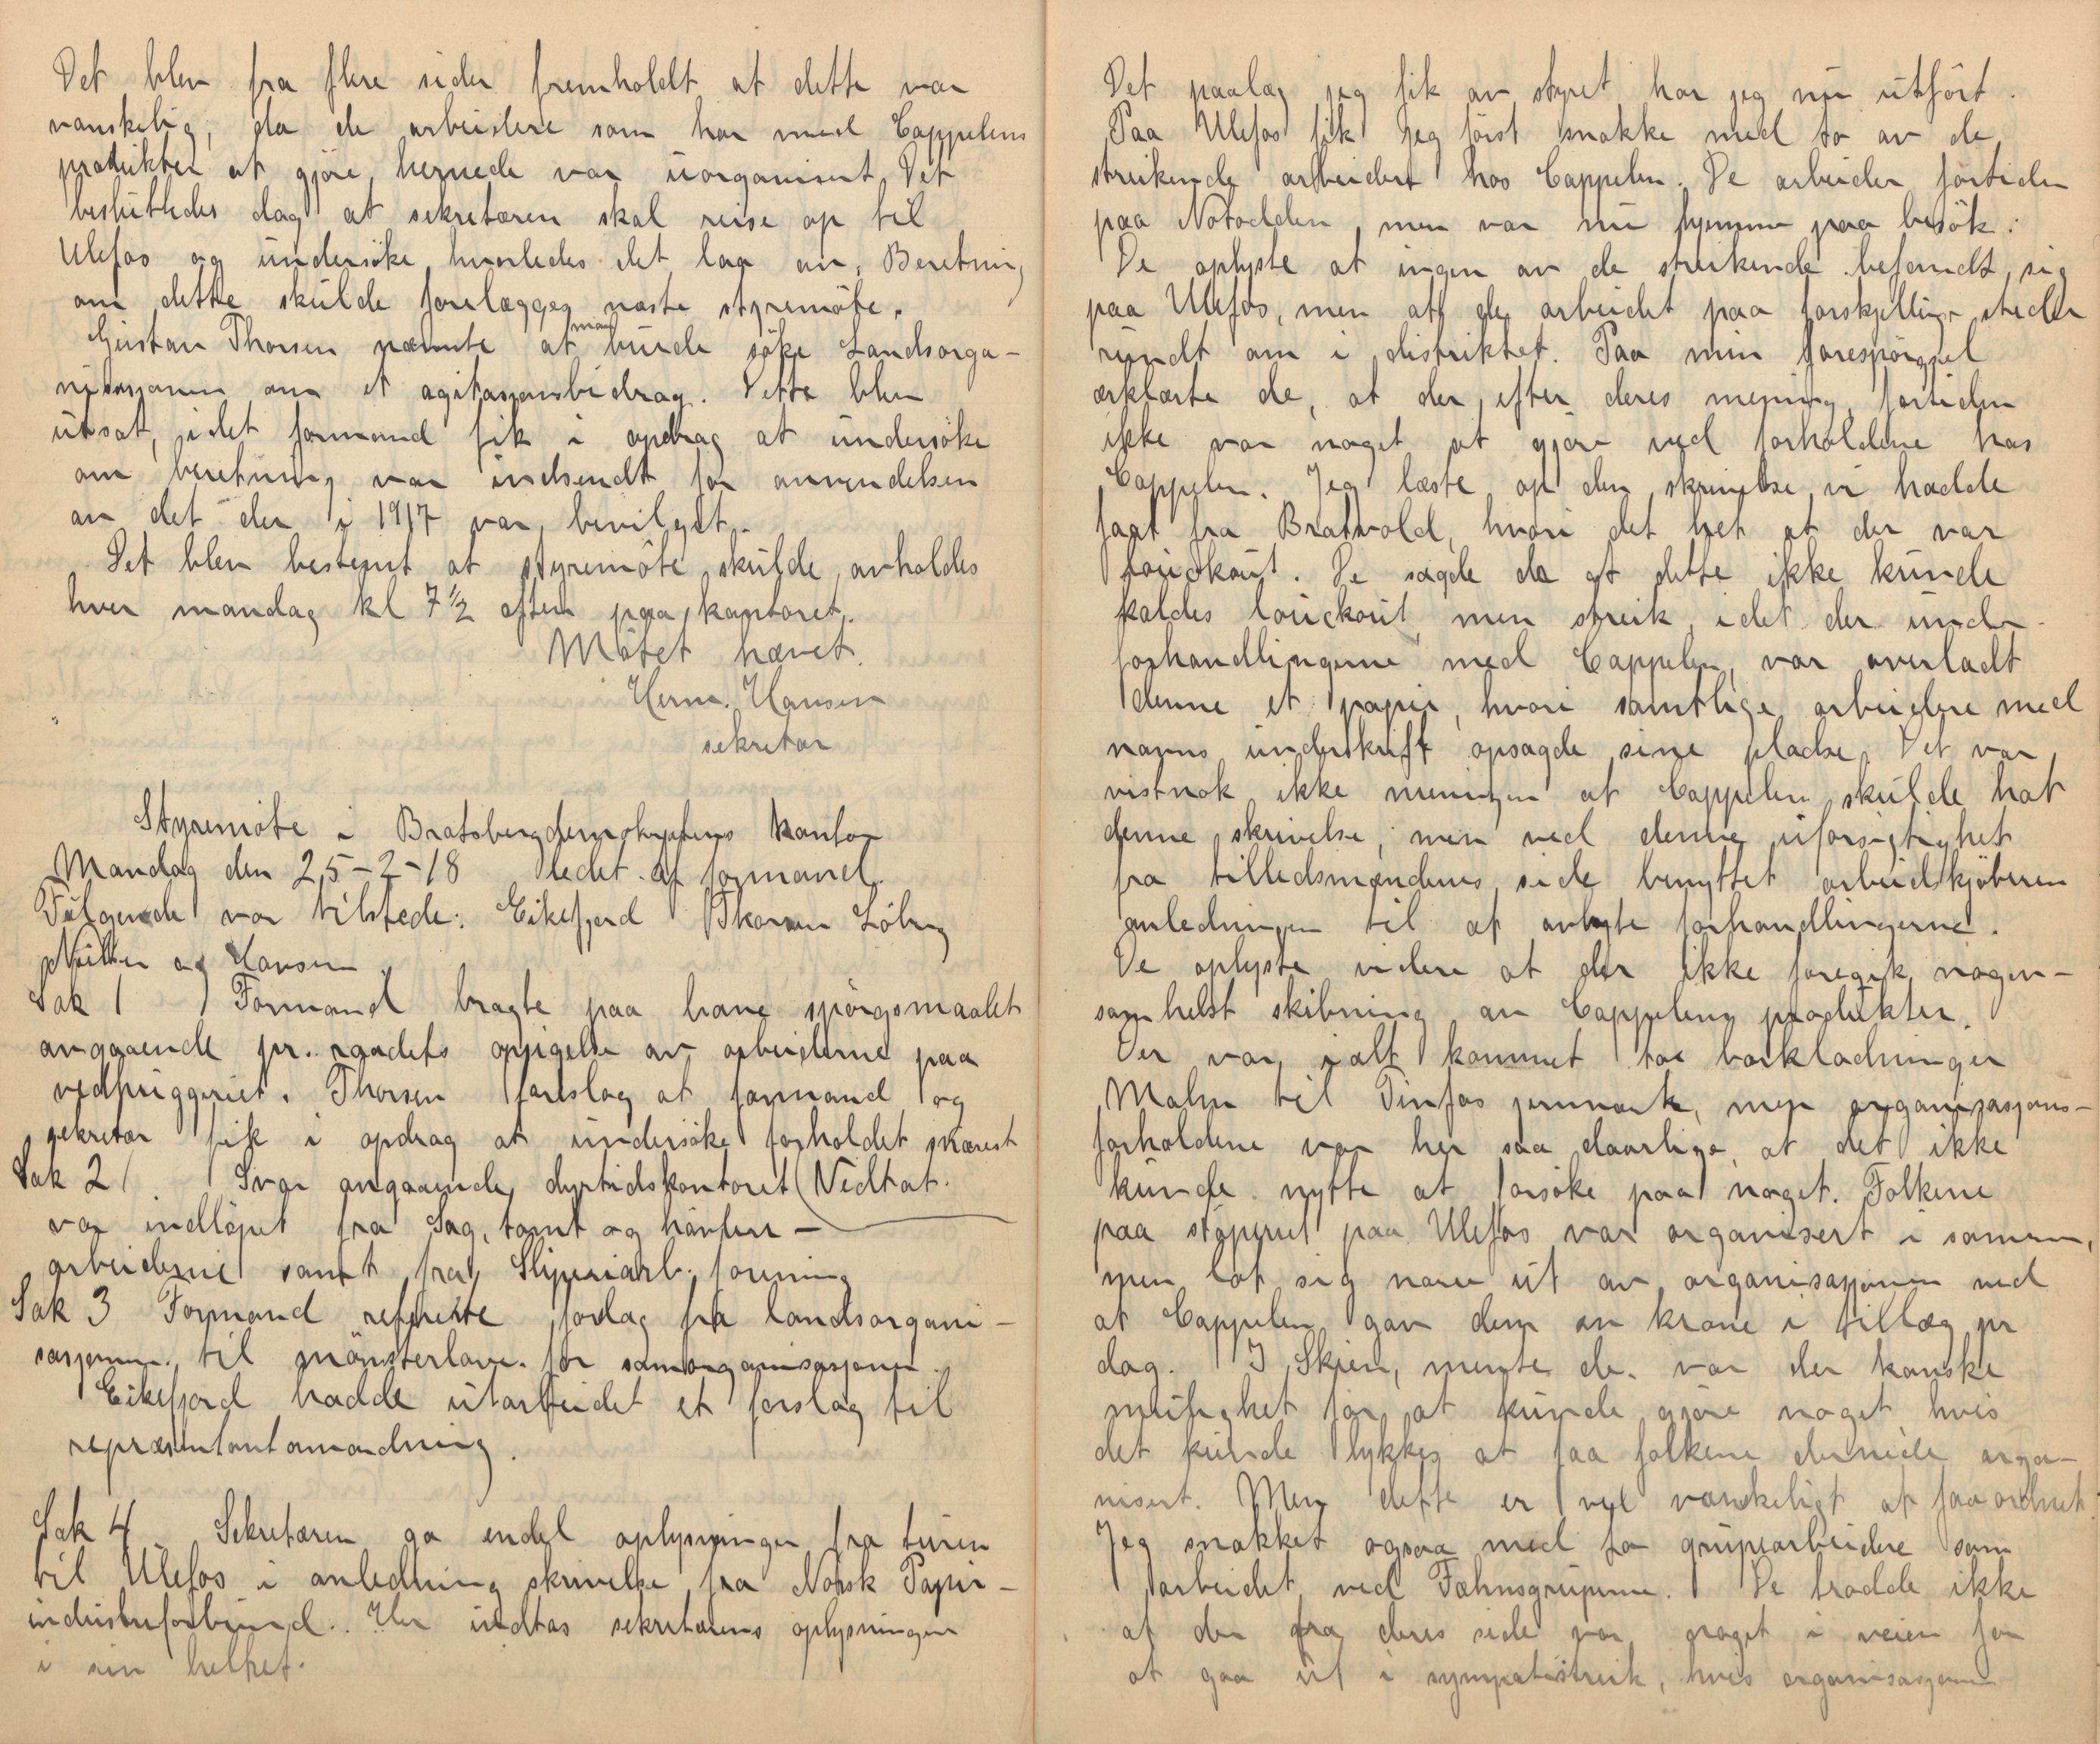 Det blev fra flere sider fremholdt at dette var
vanskelig, da de arbeidere som har med Cappelens
produkter at gjöre hernede var uorganisert. Det
besluttedes dog at sekretæren skal reise op til
Ulefos og undersöke hvorledes det laa an. Beretning
om dette skulde forelægges næste styremöte.
Gustav Thorsen nævnte at man burde söke Landsorga-
nisasjonen om et agitasjonsbidrag. Dette blev
utsat, idet formand fik i opdrag at undersöke
om beretning var indsendt for anvendelsen
av det der i 1917 var bevilget.
Det blev bestemt at styremöte skulde avholdes
hver mandag kl 7 1/2 aften paa kontoret.
Mötet hævet.
Herm. Hansen
sekretær
Styremöte i Bratsbergdemokratens kontor
Mandag den 25-2-18 ledet af formand.
Fölgende var tilstede: Eikefjord Thorsen Löberg
og Hansen.
Sak 1 Formand bragte paa bane spörgsmaalet
angaaende pr. raadets opsigelse av arbeiderne paa
vedhuggeriet. Thorsen foreslog at formand og
sekretær fik i opdrag at undersöke forholdet snarest
Sak 2 Svar angaaende dyrtidskontoret (Vedtat.
var indlöpet fra Sag, tomt og høvleri-
arbeiderne samt fra Sliperiarb. forening
Sak 3 Formand refererte forslag fra landsorgani-
sasjonen til mönsterlove for samorganisasjoner.
Eikefjord hadde utarbeidet et forslag til
repræsentantanordning.
Sak 4 Sekretæren ga endel oplysninger fra turen
til Ulefos i anledning skrivelse fra Norsk Papir-
industriforbund. Her indtas sekretærens oplysninger
i sin helhet.
Det paalæg jeg fik av styret har jeg nu utfört.
Paa Ulefos fik jeg först snakke med to av de
streikende arbeidere hos Cappelen. De arbeider förtiden
paa Notodden, men var nu hjemme paa besök.
De oplyste at ingen av de streikende befandt sig
paa Ulefos, men at de arbeidet paa forskjellige steder
rundt om i distriktet. Paa min forespörgsel
erklærte de, at der, efter deres mening, fortiden
ikke var noget at gjöre ved forholdene hos
Cappelen. Jeg læste op den skrivelse vi hadde
faat fra Bratvold, hvori det het at der var
louckout. De sagde da at dette ikke kunde
kaldes louckout, men streik, idet der under
forhandlingerne med Cappelen, var overladt
denne et papir, hvori samtlige arbeidere med
navns underskrift opsagde sine pladse. Det var
vistnok ikke meningen at Cappelen skulde hat
denne skrivelse, men ved denne uforsigtighet
fra tillidsmændenes side benyttet arbeidskjöberen
anledningen til at avbryte forhandlingerne.
De oplyste videre at der ikke foregik nogen-
somhelst skibning av Cappelens produkter.
Der var ialt kommet to barkladninger
Malm til Tinfos jernverk, men organisasjons-
forholdene var her saa daarlige, at det ikke
kunde nytte at forsöke paa noget. Folkene
paa stöperiet paa Ulefos var organisert i sommer,
men lot sig narre ut av organisasjonen ved
at Cappelen gav dem en krone i tillæg pr
dag. I Skien, mente de, var der kanske
mulighet for at kunde gjöre noget hvis
det kunde lykkes at faa folkene dernede orga-
nisert. Men dette er vel vanskeligt at faa ordnet.
Jeg snakket ogsaa med to grubearbeidere som
arbeidet ved Fæhnsgruperne. De trodde ikke
at der fra deres side var noget i veien for
at gaa ut i sympatistreik, hvis organisasjonen